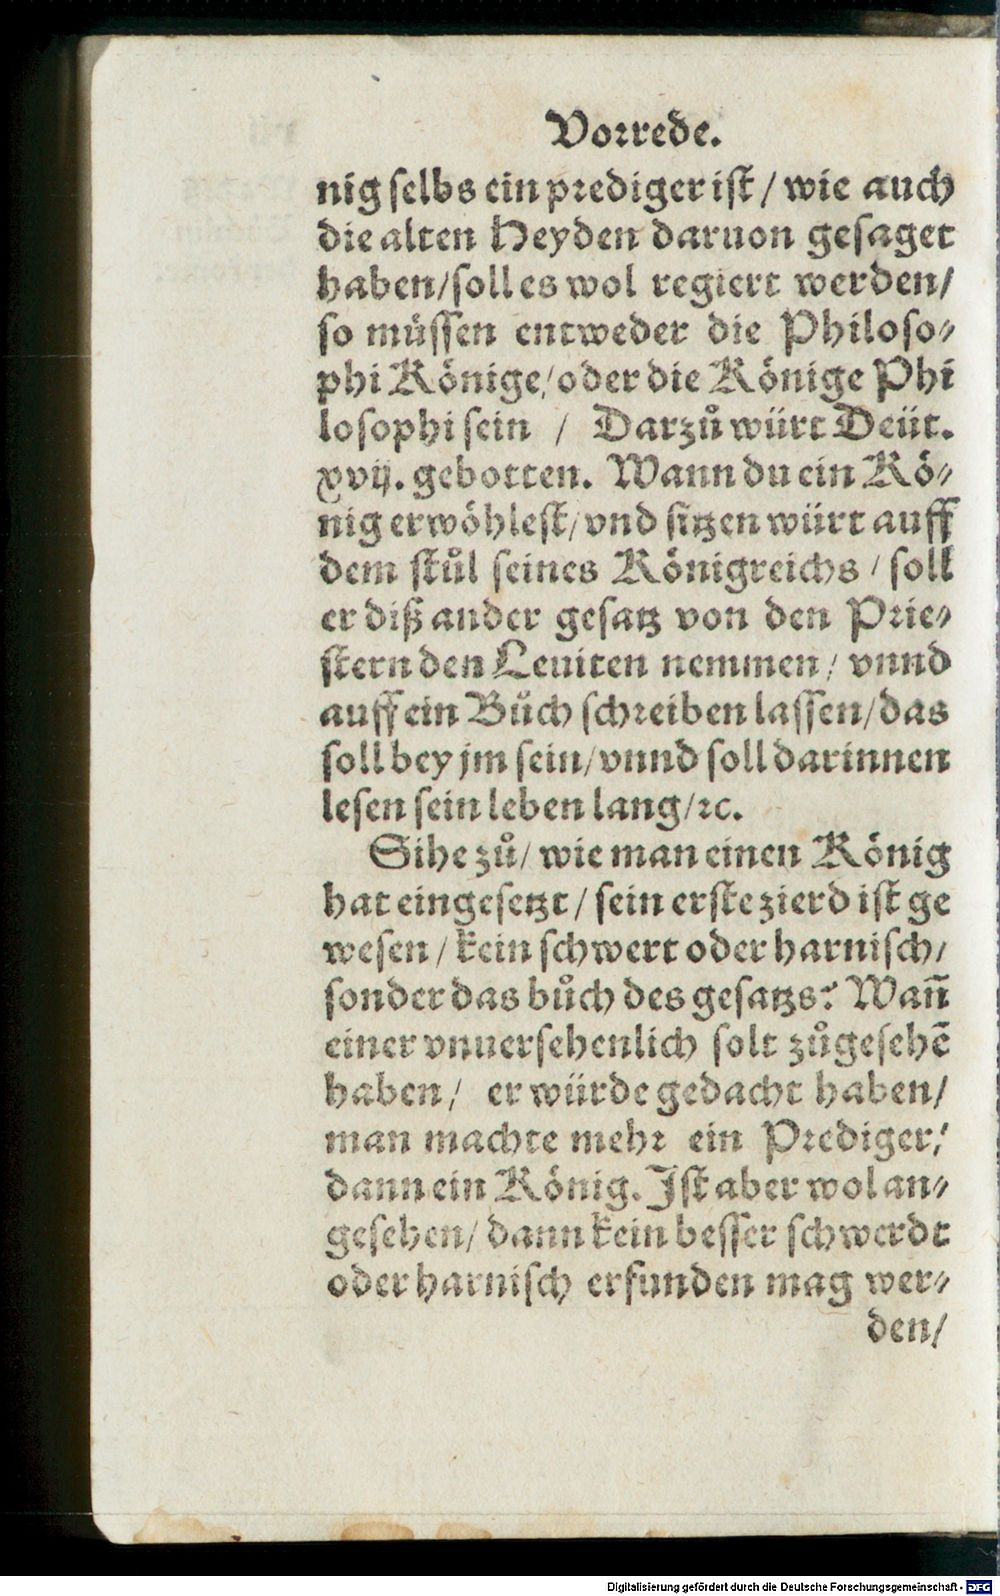 Vorrede.
nig selbs ein prediger ist / wie auch
die alten Heyden daruon gesaget
haben/soll es wol regiert werden/
so müssen entweder die Philoso⸗
phi Könige/oder die Könige Phi
losophi sein / Darzů würt Deüt.
xvij. gebotten. Wann du ein Kö⸗
nig erwöhlest/vnd sitzen würt auff
dem stůl seines Königreichs / soll
er diß ander gesatz von den Prie⸗
stern den Leuiten nemmen / vnnd
auff ein Bůch schreiben lassen/das
soll bey jm sein/vnnd soll darinnen
lesen sein leben lang/ꝛc.
Sihe zů/ wie man einen König
hat eingesetzt / sein erste zierd ist ge
wesen / kein schwert oder harnisch/
sonder das bůch des gesatzs? Wañ
einer vnuersehenlich solt zůgesehẽ
haben / er würde gedacht haben/
man machte mehr ein Prediger/
dann ein König. Ist aber wol an⸗
gesehen/ dann kein besser schwerdt
oder harnisch erfunden mag wer⸗
den/
Digitalisierung gefördert durch die Deutsche Forschungsgemeinschaft - DFG